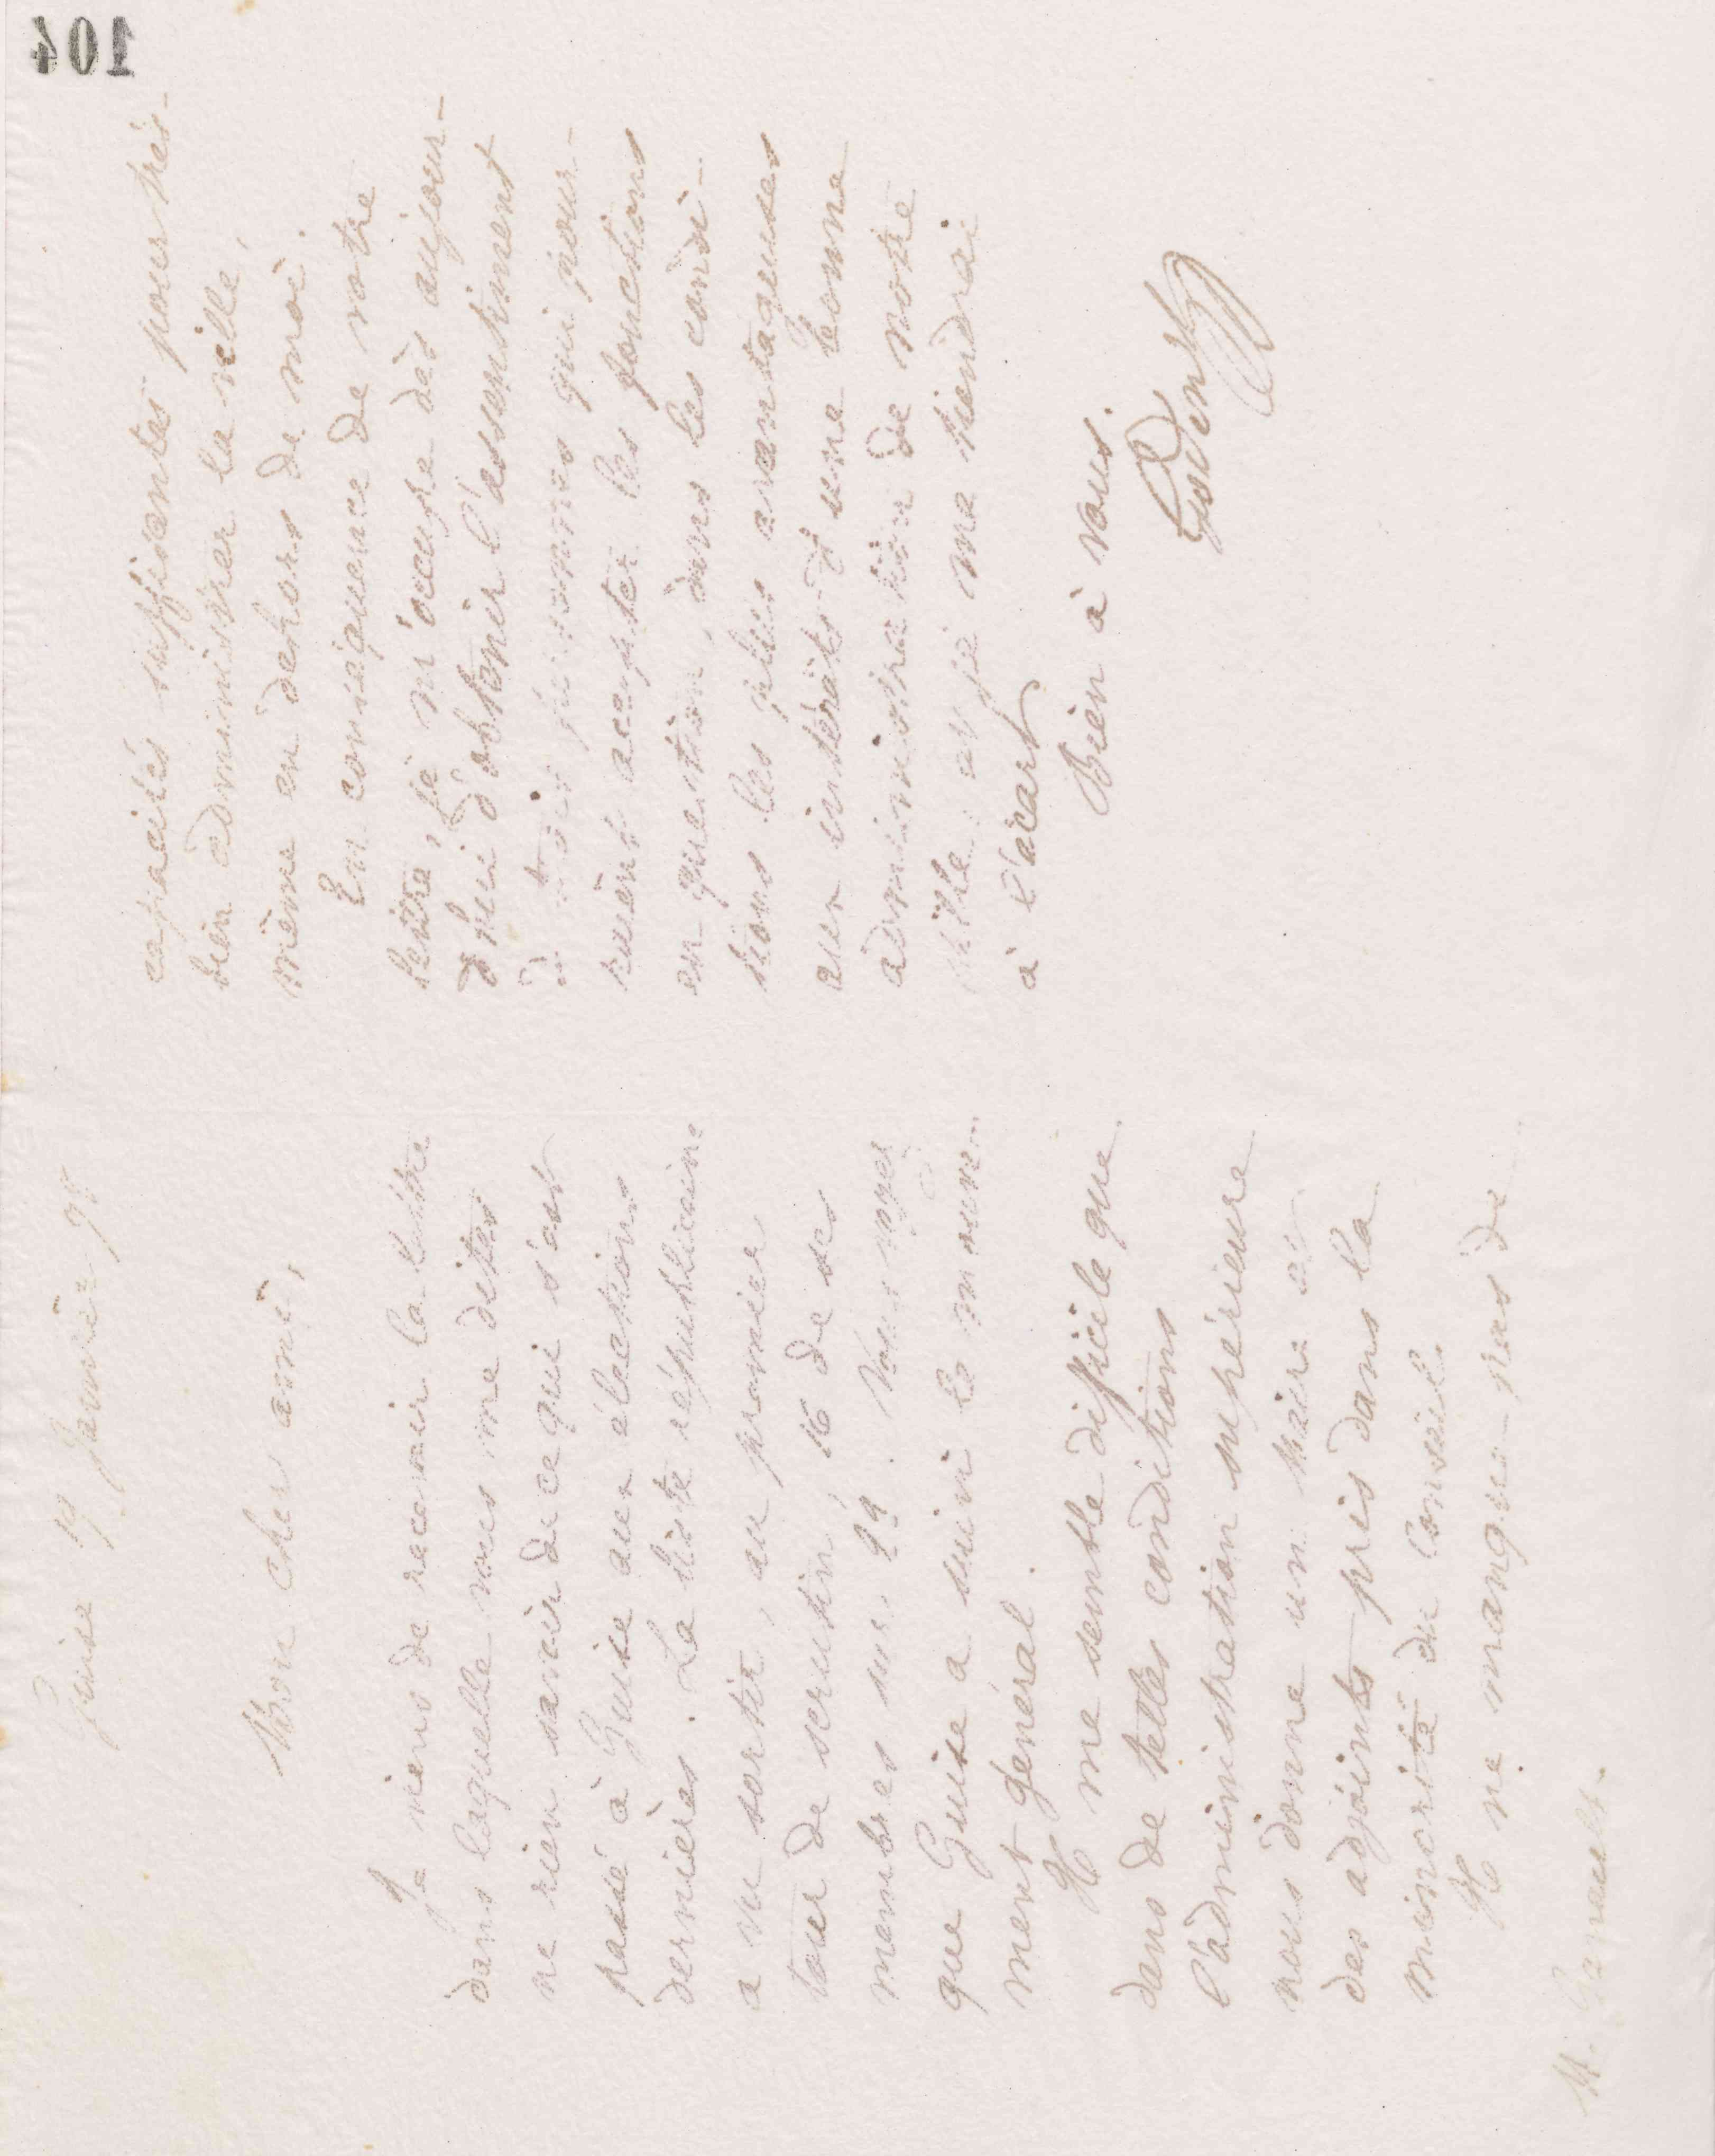 104
Guise 19 Janvier 78
Mon cher ami,
Je viens de recevoir la lettre
dans laquelle vous me dites
ne rien savoir de ce qui s'est
passé à Guise aux élections
dernières. La liste républicaine
a vu sortir, au premier
tour de scrutin, 16 de ses
membres sur 22. Vous voyez
que Guise a suivi le mouve-
ment général.
Il me semble difficile que
dans de telles conditions
l'administration supérieure
nous donne un maire et
des adjoints pris dans la
minorité du Conseil.
Il ne manque pas de
M. Ganault.
capacités suffisantes pour très-
bien administrer la ville,
même en dehors de moi.
En conséquence de votre
lettre, je m'occupe dès aujour-
d'hui d'obtenir l'assentiment
de trois personnes qui pour-
raient accepter les fonctions
en question, dans les condi-
tions les plus avantageuses
aux intérêts d'une bonne
administration de notre
ville et je me tiendrai
à l'écart
Bien à vous.
Godin